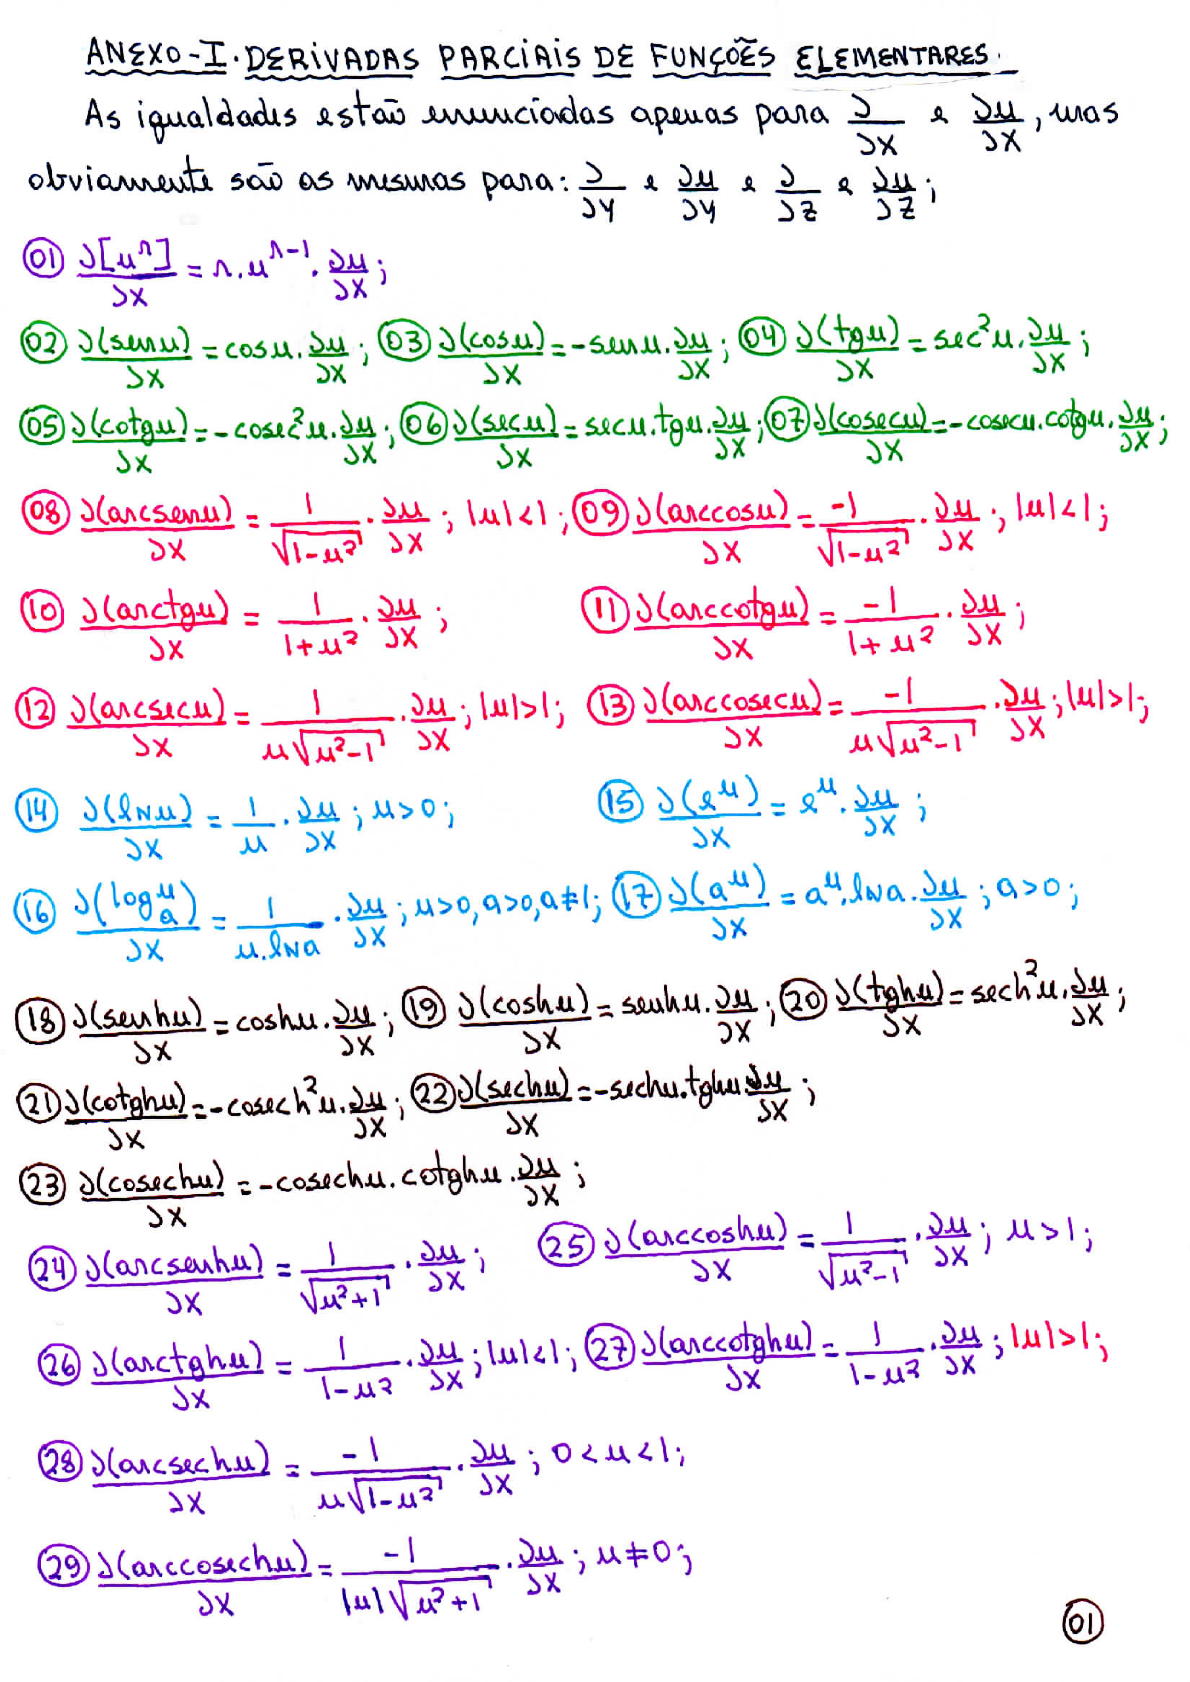 ANEXO-I. DERIVADAS PARCIAIS DE FUNÇÕES ELEMENTARES.
As igualdades estão enunciadas apenas para ∂/∂x e ∂u/∂x, mas
obviamente são as mesmas para: ∂/∂y e ∂u/∂y e ∂/∂z e ∂u/∂z;
01 ∂[u^n]/∂x = n.u^(n-1).∂u/∂x;
02 ∂(senu)/∂x = cosu.∂u/∂x; 03 ∂(cosu)/∂x = -senu.∂u/∂x; 04 ∂(tgu)/∂x = sec²u.∂u/∂x;
05 ∂(cotgu)/∂x = -cosec²u.∂u/∂x; 06 ∂(secu)/∂x = secu.tgu.∂u/∂x; 07 ∂(cosecu)/∂x = -cosecu.cotgu.∂u/∂x;
08 ∂(arcsenu)/∂x = 1/√(1-u²).∂u/∂x; |u|<1; 09 ∂(arccosu)/∂x = -1/√(1-u²).∂u/∂x; |u|<1;
10 ∂(arctgu)/∂x = 1/(1+u²).∂u/∂x; 11 ∂(arccotgu)/∂x = -1/(1+u²).∂u/∂x;
12 ∂(arcsecu)/∂x = 1/(u√(u²-1)).∂u/∂x; |u|>1; 13 ∂(arccosecu)/∂x = -1/(u√(u²-1)).∂u/∂x; |u|>1;
14 ∂(lnu)/∂x = 1/u.∂u/∂x; u>0; 15 ∂(e^u)/∂x = e^u.∂u/∂x;
16 ∂(log_a^u)/∂x = 1/(u.lna).∂u/∂x; u>0, a>0, a≠1; 17 ∂(a^u)/∂x = a^u.lna.∂u/∂x; a>0;
18 ∂(senhu)/∂x = coshu.∂u/∂x; 19 ∂(coshu)/∂x = senhu.∂u/∂x; 20 ∂(tghu)/∂x = sech²u.∂u/∂x;
21 ∂(cotghu)/∂x = -cosech²u.∂u/∂x; 22 ∂(sechu)/∂x = -sechu.tghu.∂u/∂x;
23 ∂(cosechu)/∂x = -cosechu.cotghu.∂u/∂x;
24 ∂(arcsenhu)/∂x = 1/√(u²+1).∂u/∂x; 25 ∂(arccoshu)/∂x = 1/√(u²-1).∂u/∂x; u>1;
26 ∂(arctghu)/∂x = 1/(1-u²).∂u/∂x; |u|<1; 27 ∂(arccotghu)/∂x = 1/(1-u²).∂u/∂x; |u|>1;
28 ∂(arcsechu)/∂x = -1/(u√(1-u²)).∂u/∂x; 0<u<1;
29 ∂(arccosechu)/∂x = -1/(|u|√(u²+1)).∂u/∂x; u≠0;
01